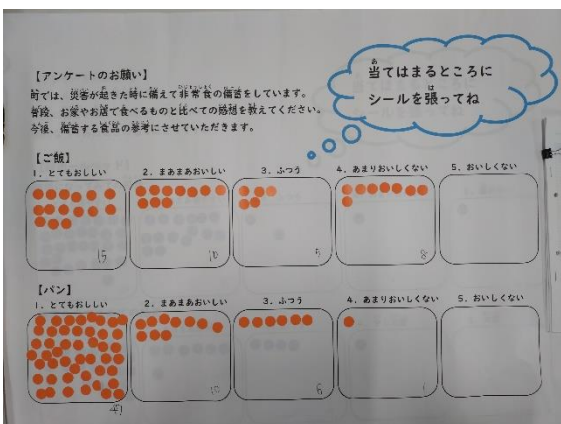 【アンケートのお願い】
町では、災害が起きた時に備えて非常食の備蓄をしています。
普段、お家やお店で食べるものと比べての感想を教えてください。
今後、備蓄する食品の参考にさせていただきます。
当てはまるところに
シールを張ってね
【ご飯】
1．とてもおししい 2．まあまあおいしい 3．ふつう 4．あまりおいしくない 5．おいしくない
15 10 5 8
【パン】
1．とてもおししい 2．まあまあおいしい 3．ふつう 4．あまりおいしくない 5．おいしくない
10 6 1